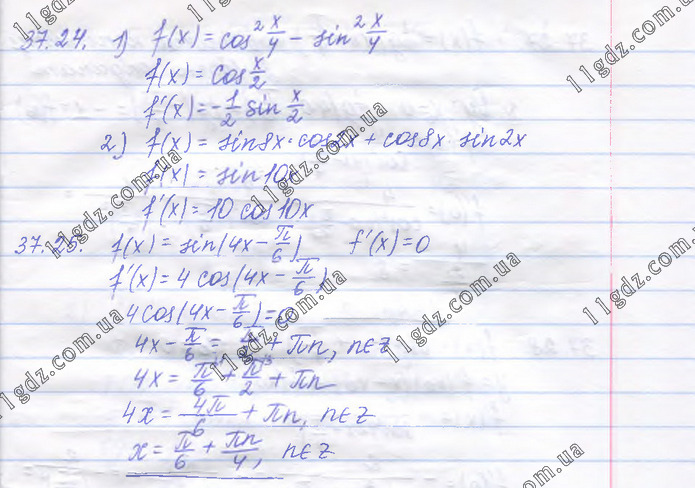 37.24. 1) f(x) = cos² x/4 - sin² x/4
f(x) = cos x/2
f'(x) = -1/2 sin x/2
2) f(x) = sin8x·cos2x + cos8x·sin2x
f(x) = sin10x
f'(x) = 10 cos10x
37.25. f(x) = sin(4x - π/6) f'(x) = 0
f'(x) = 4 cos(4x - π/6)
4cos(4x - π/6) = 0
4x - π/6 = π/2 + πn, n∈Z
4x = π/6 + π/2 + πn
4x = 4π/6 + πn, n∈Z
x = π/6 + πn/4, n∈Z
11gdz.com.ua
11gdz.com.ua
11gdz.com.ua
11gdz.com.ua
11gdz.com.ua
11gdz.com.ua